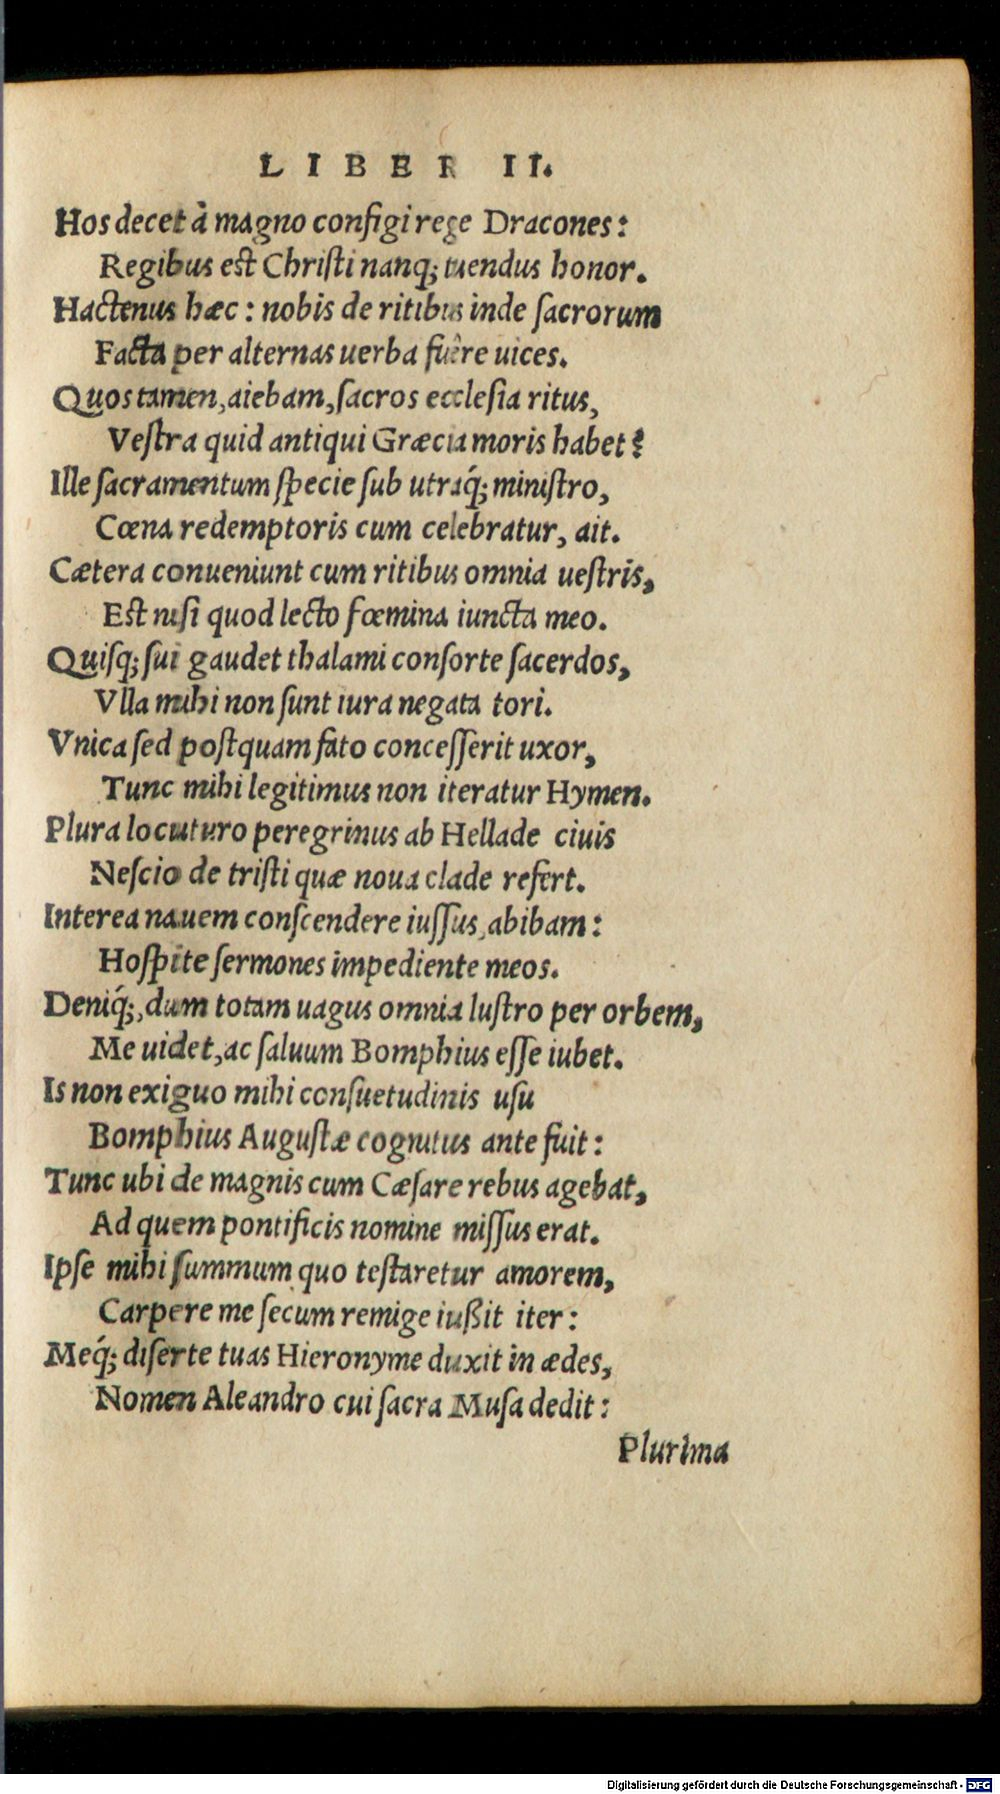 LIBER II.
Hos decet à magno configi rege Dracones:
Regibus est Christi nanq; tuendus honor.
Hactenus hæc: nobis de ritibus inde sacrorum
Facta per alternas uerba fuêre uices.
Quos tamen, aiebam, sacros ecclesia ritus,
Vestra quid antiqui Græcia moris habet?
Ille sacramentum specie sub utraq́; ministro,
Cœna redemptoris cum celebratur, ait.
Cætera conueniunt cum ritibus omnia uestris,
Est nisi quod lecto fœmina iuncta meo.
Quisq; sui gaudet thalami consorte sacerdos,
Vlla mihi non sunt iura negata tori.
Vnica sed postquam fato concesserit uxor,
Tunc mihi legitimus non iteratur Hymen.
Plura locuturo peregrinus ab Hellade ciuis
Nescio de tristi quæ noua clade refert.
Interea nauem conscendere iussus, abibam:
Hospite sermones impediente meos.
Deniq́;, dum totam uagus omnia lustro per orbem,
Me uidet, ac saluum Bomphius esse iubet.
Is non exiguo mihi consuetudinis usu
Bomphius Augustæ cognitus ante fuit:
Tunc ubi de magnis cum Cæsare rebus agebat,
Ad quem pontificis nomine missus erat.
Ipse mihi summum quo testaretur amorem,
Carpere me secum remige iußit iter:
Meq́; diserte tuas Hieronyme duxit in ædes,
Nomen Aleandro cui sacra Musa dedit:
Plurima
Digitalisierung gefördert durch die Deutsche Forschungsgemeinschaft - DFG